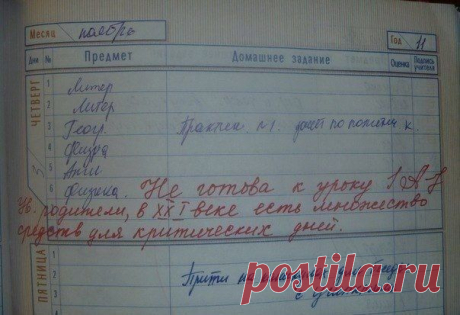 Месяц ноябрь Год 11
Дни № Предмет Домашнее задание Оценка Подпись учителя
ЧЕТВЕРГ
1 Литер
2 Литер
3 Геогр. Практич. №1:
4 Физра
5 Англ
6 Физика. Не готова к уроку!
Ув. родители, в XXI веке есть множество
средств для критических дней.
ПЯТНИЦА
1
2 Прийти на
3 с
postila.ru